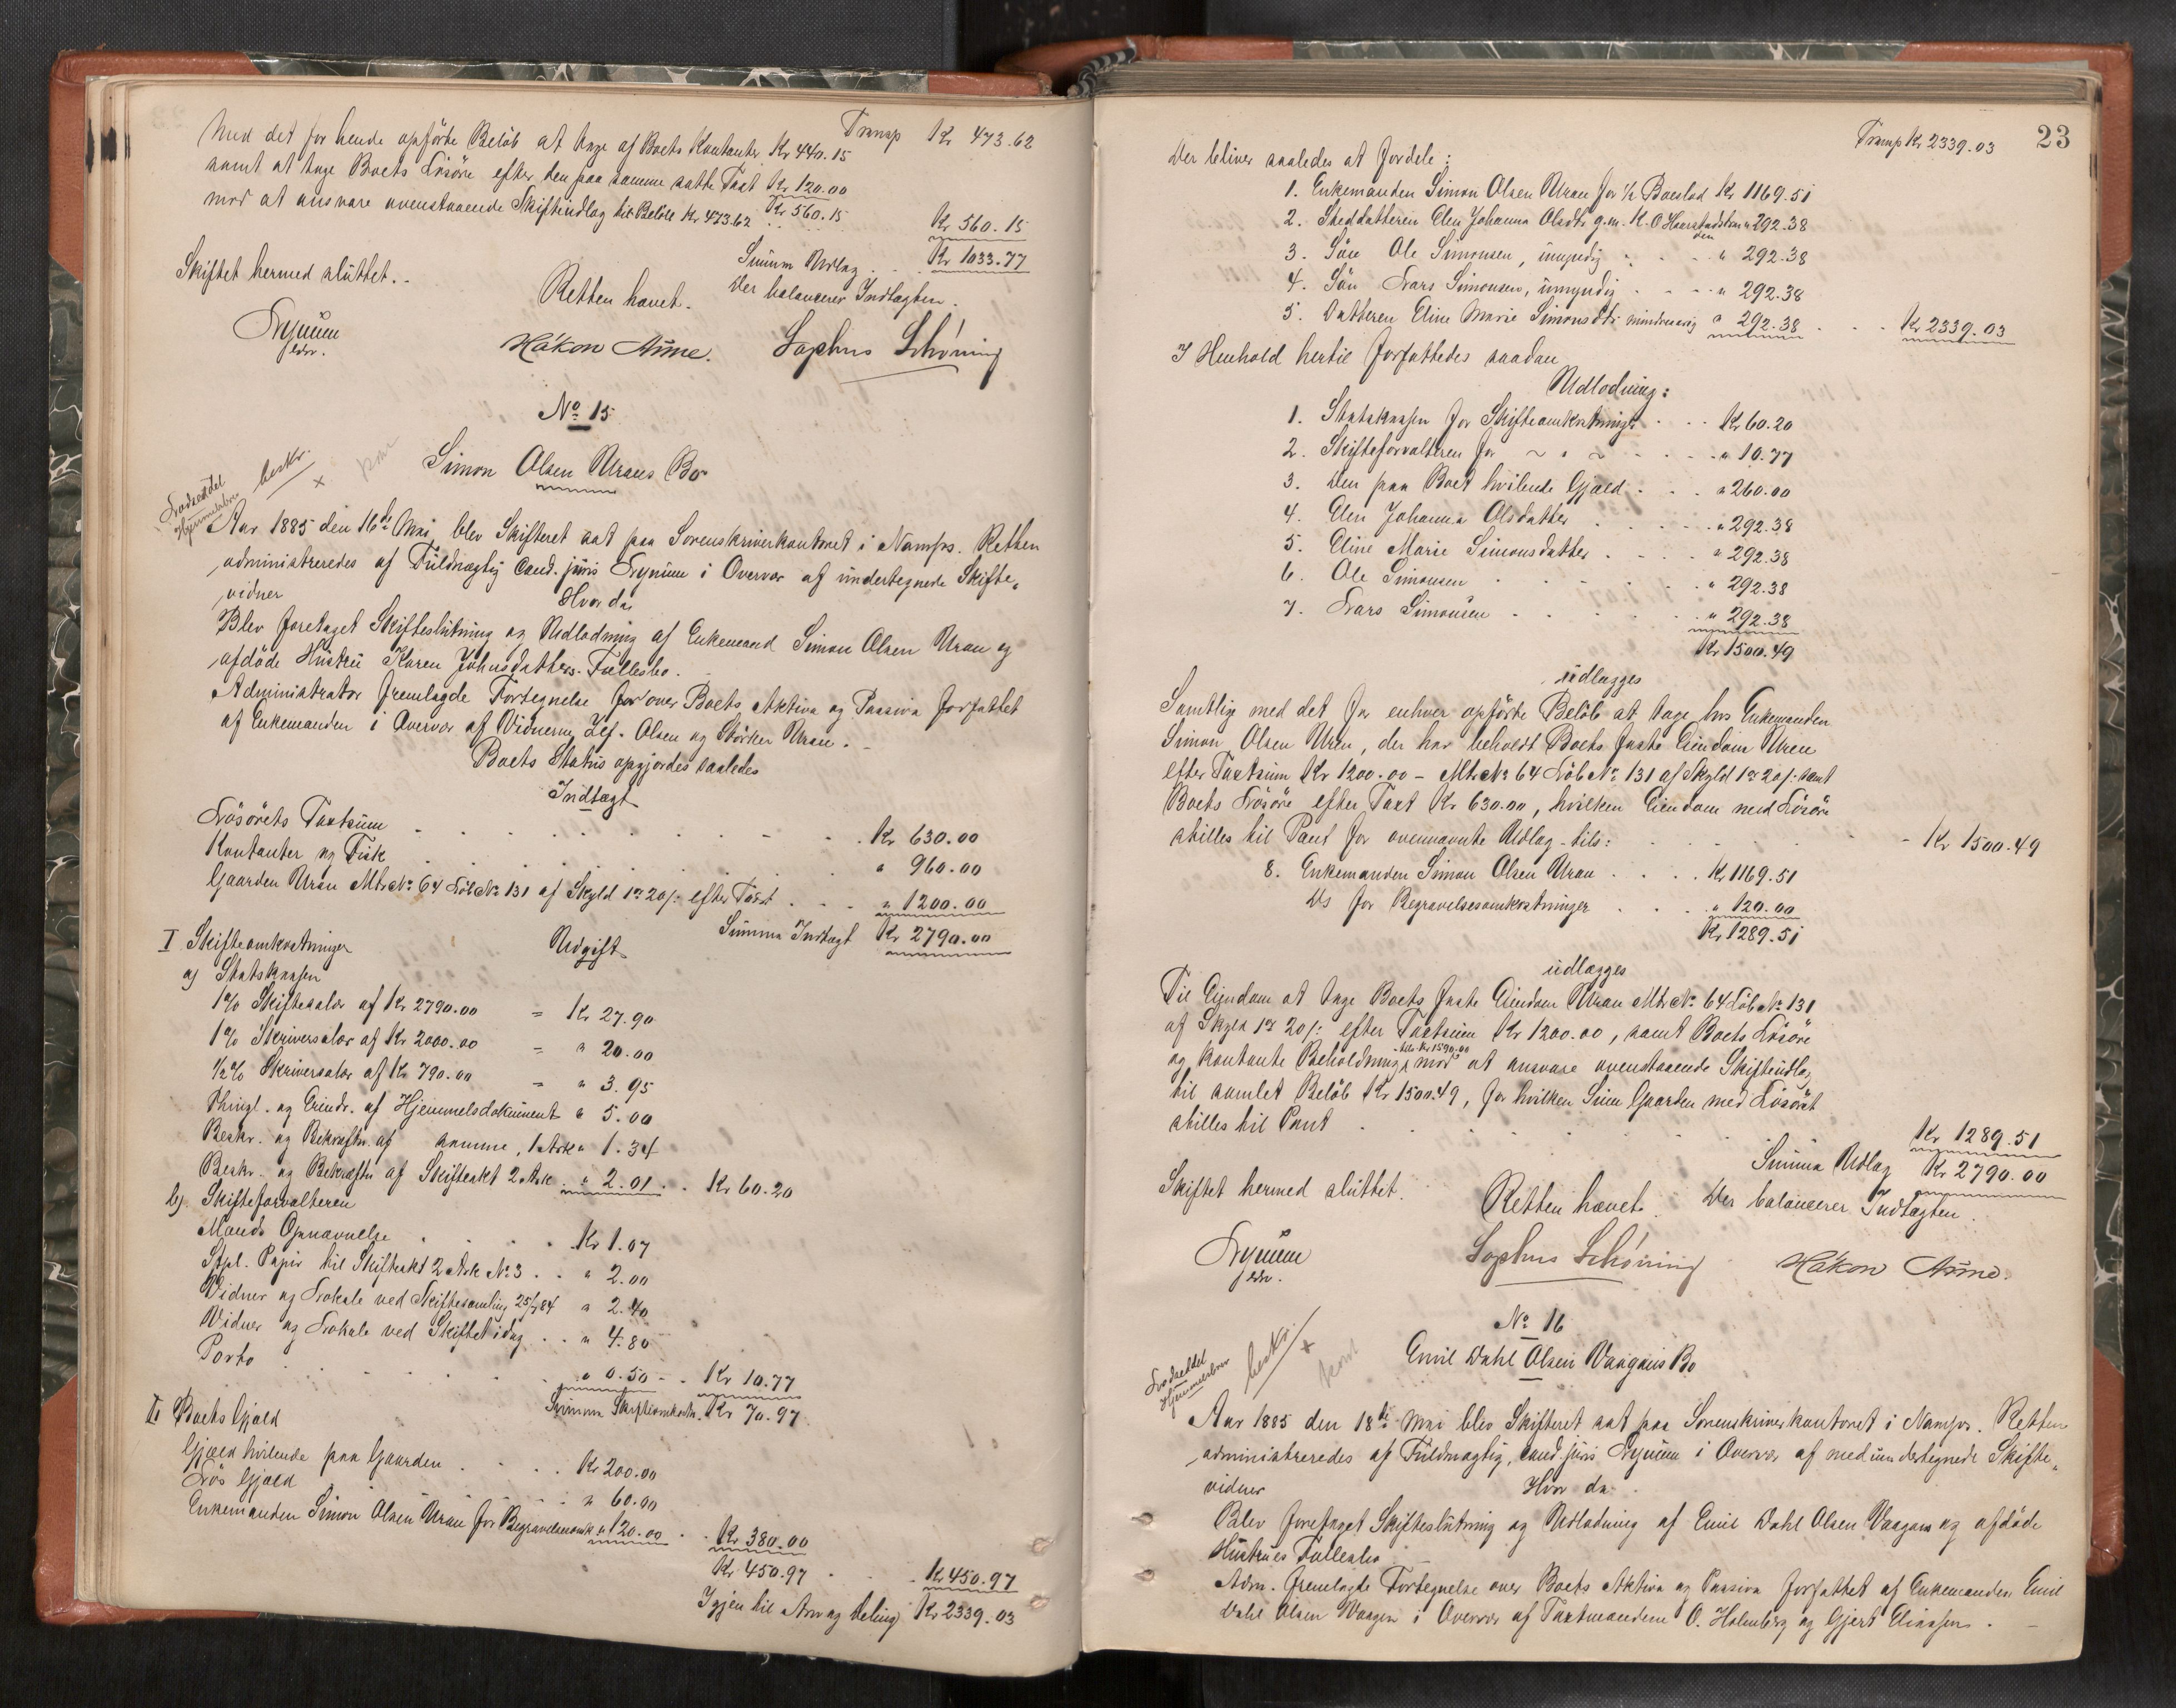 Transp Kr 473.62
Med det for hende opförte Belöb at tage af Boets Kontanter Kr 440.15
samt at tage Boets Lösöre efter den paa samme satte Taxt Kr 120.00
Kr 560.15
mod at ansvare ovenstaaende Skifteudlæg til Belöb Kr 473.62 . . . . . Kr 560.15
Summa Udlæg . . Kr 1033.77
Skiftet hermed sluttet.
Der balancerer Indtægten.
Retten hævet.
Håkon Aune. Sophus Schöning
No 15
Simon Olsen Urans Bo
Lodseddel
Hjemmelsbrev
beskr.
×
Aar 1885 den 16de Mai blev Skifteret sat paa Sorenskriverkontoret i Namsos. Retten
administreredes af Fuldmægtig Cand. juris Lynum i Overvær af undertegnede Skifte-
vidner
Hvorda
Blev foretaget Skifteslutning og Udlodning af Enkemand Simon Olsen Uran og
afdöde Hustru Karen Johnsdatters Fællesbo.
Administrator fremlagde Fortegnelse for over Boets Aktiva og Passiva forfattet
af Enkemanden i Overvær af Vidnerne Zef. Olsen og Störker Uran.
Boets Status opgjordes saaledes
Indtægt
Lösörets Taxtsum . . . . . . . . Kr 630.00
Kontanter og Fisk . . . . . . . " 960.00
Gaarden Uran Mtr No 64 Löb No 131 af Skyld 1 ort 20 s: efter Taxt . . . " 1200.00
Summa Indtægt Kr 2790.00
Udgift
I Skifteomkostninger
a) Statskassen
1% Skiftesalær af Kr 2790.00 = Kr 27.90
1% Skriversalær af Kr 2000.00 = " 20.00
1/2% Skriversalær af Kr 790.00 = " 3.95
Thingl. og Erindr. af Hjemmelsdokument " 5.00
Beskr. og Bekræftn. af samme, 1 Ark " 1.34
Beskr. og Bekræftn af Skifteakt 2 Ark . " 2.01 . . Kr 60.20
b) Skifteforvalteren
Mænds Opnævnelse . . . . Kr 1.07
Stpl. Papir til Skifteakt 2 Ark No 3 . . " 2.00
Vidner og Lokale ved Skiftesamling 25/7 84 " 2.40
Vidner og Lokale ved Skiftet idag . . " 4.80
Porto . . . . . " 0.50 - . Kr 10.77
Summa Skifteomkostn. Kr 70.97
II Boets Gjæld
Gjæld hvilende paa Gaarden . . . . Kr 200.00
Lös Gjæld . . . . " 60.00
Enkemanden Simon Olsen Uran for Begravelsesomk. " 120.00 . . Kr 380.00
Kr 450.97 . . . Kr 450.97
Igjen til Arv og Deling Kr 2339.03
23
Transp Kr 2339.03
Der bliver saaledes at fordele:
1. Enkemanden Simon Olsen Uran for 1/2 Boeslod Kr 1169.51
2. Steddatteren Elen Johanna Olsdtr g.m. K. O. " 292.38
3. Sön Ole Simonsen, umyndig . . . " 292.38
4. Sön Lars Simonsen, umyndig . . . " 292.38
5. Datteren Eline Marie Simonsdtr mindreaarig " 292.38 . . . Kr 2339.03
I Henhold hertil forfattedes saadan
Udlodning:
1. Statskassen for Skifteomkostninger . . . Kr 60.20
2. Skifteforvalteren for ~ " ~ . . . . " 10.77
3. Den paa Boet hvilende Gjæld . . . " 260.00
4. Elen Johanna Olsdatter . . . . " 292.38
5. Eline Marie Simonsdatter . . . . " 292.38
6. Ole Simonsen . . . . . " 292.38
7. Lars Simonsen . . . . . " 292.38
Kr 1500.49
udlægges
Samtlige med det for enhver opförte Belöb at tage hos Enkemanden
Simon Olsen Uran, der har beholdt Boets faste Eiendom Uran
efter Taxtsum Kr 1200.00 - Mtr No 64 Löb No 131 af Skyld 1 ort 20 s: samt
Boets Lösöre efter Taxt Kr 630.00, hvilken Eiendom med Lösöre
stilles til Pant for ovennævnte Udlæg - tils: . . . . . - Kr 1500.49
8. Enkemanden Simon Olsen Uran . . . . Kr 1169.51
Ds for Begravelsesomkostninger . . . " 120.00
Kr 1289.51
udlægges
Til Eiendom at tage Boets faste Eiendom Uran Mtr No 64 Löb No 131
af Skyld 1 ort 20 s: efter Taxtsum Kr 1200.00, samt Boets Lösöre
og kontante Beholdning tils. Kr 1590.00 mod at ansvare ovenstaaende Skifteudlæg
til samlet Belöb Kr 1500.49, for hvilken Sum Gaarden med Lösöret
stilles til Pant . . . . . . . . Kr 1289.51
Summa Udlæg Kr 2790.00
Skiftet hermed sluttet. Retten hævet. Der balancerer Indtægten.
Lynum
Sophus Schöning Håkon Aune.
No 16
Emil Dahl Olsen Vaagans Bo
Lodseddel
Hjemmelsbrev
beskr.
×
Aar 1885 den 18de Mai blev Skifteret sat paa Sorenskriverkontoret i Namsos. Retten
administreredes af Fuldmægtig, cand. juris Lynum i Overvær af medundertegnede Skifte-
vidner
Hvor da
Blev foretaget Skifteslutning og Udlodning af Emil Dahl Olsen Vaagan og afdöde
Hustrues Fællesbo
Adm. fremlagde Fortegnelse over Boets Aktiva og Passiva forfattet af Enkemanden Emil
Dahl Olsen Vaagan i Overvær af Taxtmændene O. Holmberg og Gjert Eliassen.